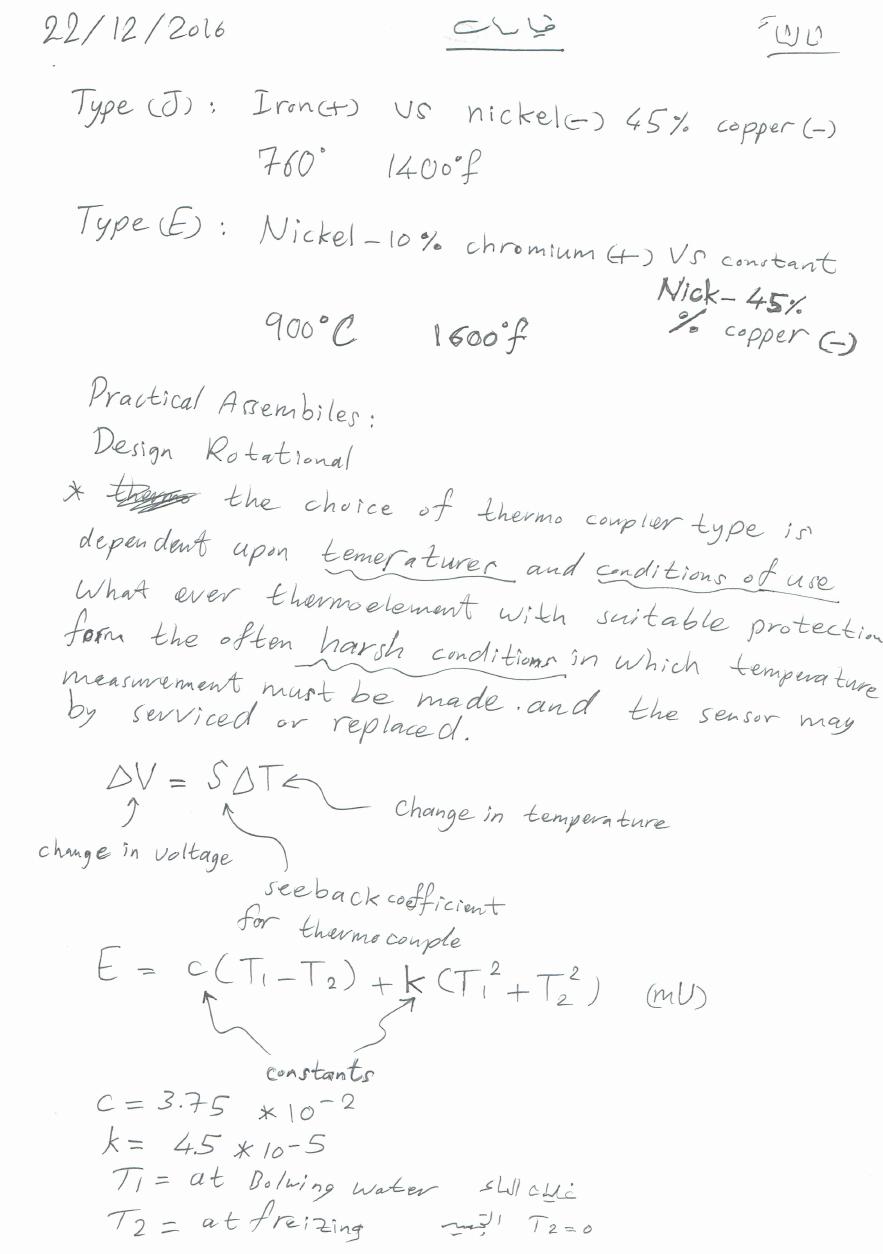 22/12/2016 قياسات ثالثاً
Type (J): Iron(+) vs nickel(-) 45% copper (-)
760° 1400°f
Type (E): Nickel-10% chromium (+) Vs constant
Nick- 45%
900°C 1600°f % copper (-)
Practical Assembiles:
Design Rotational
* the choice of thermo coupler type is
dependent upon temeratures and conditions of use
What ever thermoelement with suitable protection
form the often harsh conditions in which temperature
measurement must be made. and the sensor may
by serviced or replaced.
ΔV = SΔT
Change in temperature
change in voltage
seeback coefficient
for thermocouple
E = c(T1-T2) + k(T1²+T2²) (mU)
constants
c = 3.75 *10-2
k = 4.5 *10-5
T1 = at Bolwing water غليان الماء
T2 = at freizing التجميد T2=0